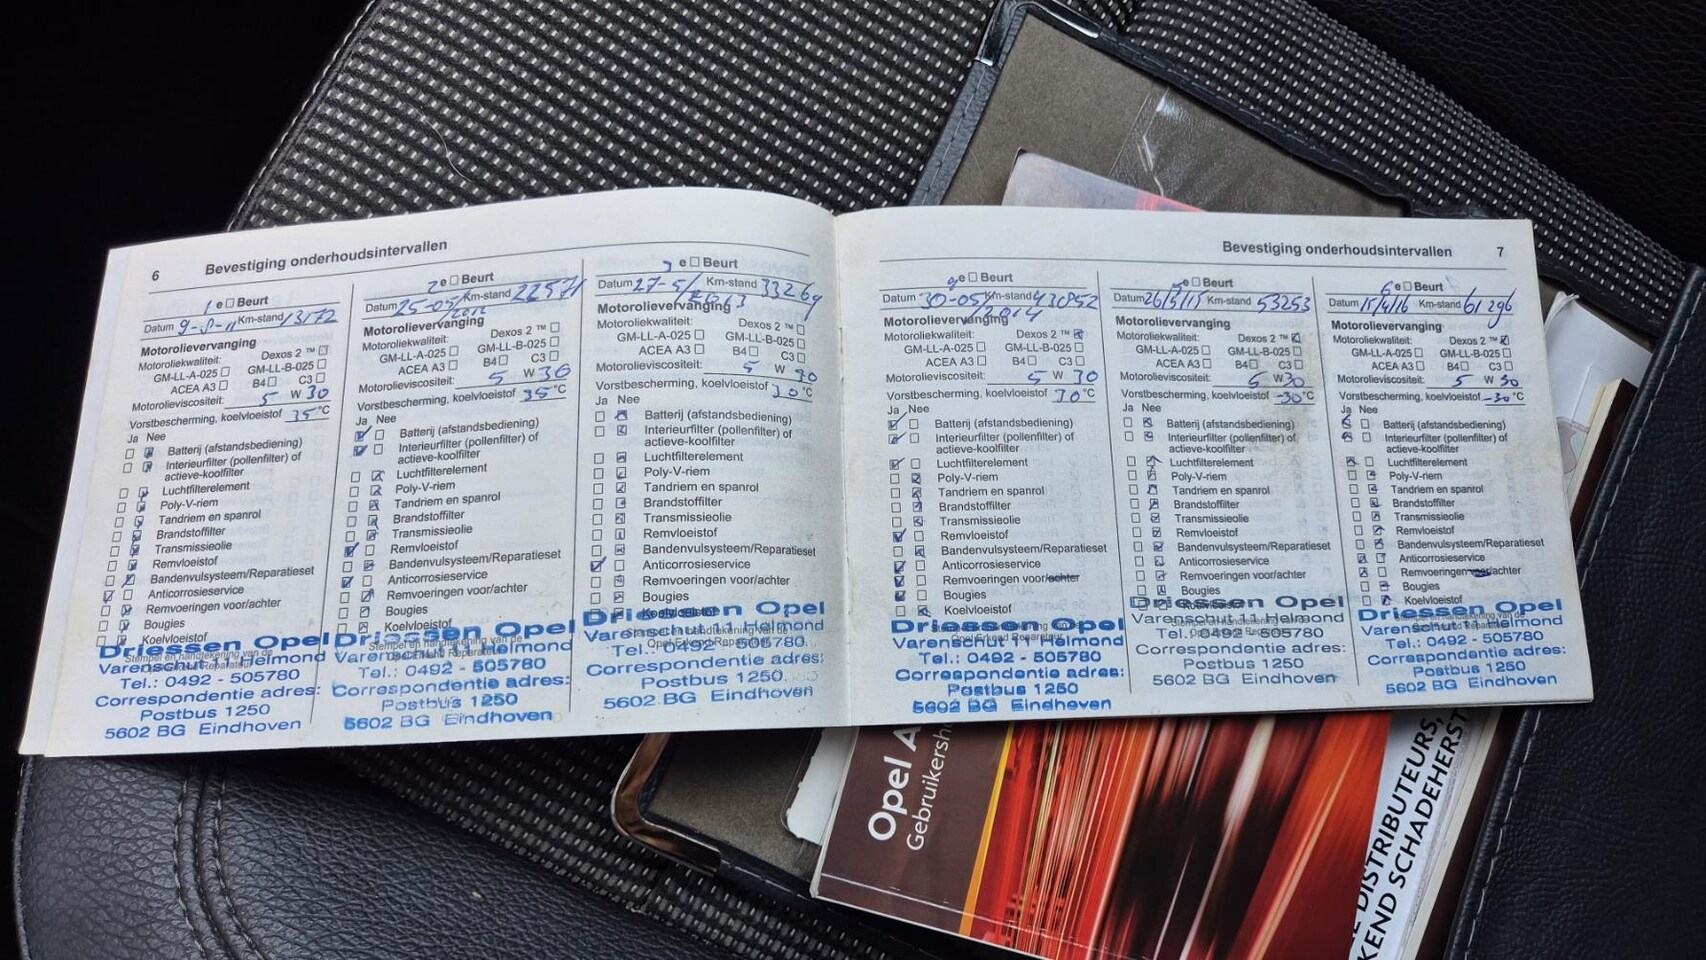 6 Bevestiging onderhoudsintervallen
1 e Beurt
Datum 9-8-11 Km-stand 13172
Motorolievervanging
Motoroliekwaliteit: Dexos 2 ™
GM-LL-A-025 GM-LL-B-025
ACEA A3 B4 C3
Motorolieviscositeit: 5 W 30
Vorstbescherming, koelvloeistof 35 °C
Ja Nee
Batterij (afstandsbediening)
Interieurfilter (pollenfilter) of
actieve-koolfilter
Luchtfilterelement
Poly-V-riem
Tandriem en spanrol
Brandstoffilter
Transmissieolie
Remvloeistof
Bandenvulsysteem/Reparatieset
Anticorrosieservice
Remvoeringen voor/achter
Bougies
Koelvloeistof
Driessen Opel
Varenschut 11 Helmond
Tel.: 0492 - 505780
Correspondentie adres:
Postbus 1250
5602 BG Eindhoven
2 e Beurt
Datum 25-05/2012 Km-stand 22571
Motorolievervanging
Motoroliekwaliteit: Dexos 2 ™
GM-LL-A-025 GM-LL-B-025
ACEA A3 B4 C3
Motorolieviscositeit: 5 W 30
Vorstbescherming, koelvloeistof 35 °C
Ja Nee
Batterij (afstandsbediening)
Interieurfilter (pollenfilter) of
actieve-koolfilter
Luchtfilterelement
Poly-V-riem
Tandriem en spanrol
Brandstoffilter
Transmissieolie
Remvloeistof
Bandenvulsysteem/Reparatieset
Anticorrosieservice
Remvoeringen voor/achter
Bougies
Koelvloeistof
Driessen Opel
Varenschut 11 Helmond
Tel.: 0492 - 505780
Correspondentie adres:
Postbus 1250
5602 BG Eindhoven
e Beurt
Datum 27-5/ Km-stand 33269
Motorolievervanging
Motoroliekwaliteit: Dexos 2 ™
GM-LL-A-025 GM-LL-B-025
ACEA A3 B4 C3
Motorolieviscositeit: 5 W
Vorstbescherming, koelvloeistof 30 °C
Ja Nee
Batterij (afstandsbediening)
Interieurfilter (pollenfilter) of
actieve-koolfilter
Luchtfilterelement
Poly-V-riem
Tandriem en spanrol
Brandstoffilter
Transmissieolie
Remvloeistof
Bandenvulsysteem/Reparatieset
Anticorrosieservice
Remvoeringen voor/achter
Bougies
Koelvloeistof
Driessen Opel
Varenschut 11 Helmond
Tel.: 0492 - 505780
Correspondentie adres:
Postbus 1250
5602 BG Eindhoven
Bevestiging onderhoudsintervallen 7
e Beurt
Datum 30-05/2014 Km-stand
Motorolievervanging
Motoroliekwaliteit: Dexos 2 ™
GM-LL-A-025 GM-LL-B-025
ACEA A3 B4 C3
Motorolieviscositeit: 5 W 30
Vorstbescherming, koelvloeistof 30 °C
Ja Nee
Batterij (afstandsbediening)
Interieurfilter (pollenfilter) of
actieve-koolfilter
Luchtfilterelement
Poly-V-riem
Tandriem en spanrol
Brandstoffilter
Transmissieolie
Remvloeistof
Bandenvulsysteem/Reparatieset
Anticorrosieservice
Remvoeringen voor/achter
Bougies
Koelvloeistof
Driessen Opel
Varenschut 11 Helmond
Tel.: 0492 - 505780
Correspondentie adres:
Postbus 1250
5602 BG Eindhoven
5 e Beurt
Datum 26/5/15 Km-stand 53253
Motorolievervanging
Motoroliekwaliteit: Dexos 2 ™
GM-LL-A-025 GM-LL-B-025
ACEA A3 B4 C3
Motorolieviscositeit: 5 W 30
Vorstbescherming, koelvloeistof -30 °C
Ja Nee
Batterij (afstandsbediening)
Interieurfilter (pollenfilter) of
actieve-koolfilter
Luchtfilterelement
Poly-V-riem
Tandriem en spanrol
Brandstoffilter
Transmissieolie
Remvloeistof
Bandenvulsysteem/Reparatieset
Anticorrosieservice
Remvoeringen voor/achter
Bougies
Koelvloeistof
Driessen Opel
Varenschut 11 Helmond
Tel.: 0492 - 505780
Correspondentie adres:
Postbus 1250
5602 BG Eindhoven
6 e Beurt
Datum 15/4/16 Km-stand 61296
Motorolievervanging
Motoroliekwaliteit: Dexos 2 ™
GM-LL-A-025 GM-LL-B-025
ACEA A3 B4 C3
Motorolieviscositeit: 5 W 30
Vorstbescherming, koelvloeistof -30 °C
Ja Nee
Batterij (afstandsbediening)
Interieurfilter (pollenfilter) of
actieve-koolfilter
Luchtfilterelement
Poly-V-riem
Tandriem en spanrol
Brandstoffilter
Transmissieolie
Remvloeistof
Bandenvulsysteem/Reparatieset
Anticorrosieservice
Remvoeringen voor/achter
Bougies
Koelvloeistof
Driessen Opel
Varenschut 11 Helmond
Tel.: 0492 - 505780
Correspondentie adres:
Postbus 1250
5602 BG Eindhoven
Opel
DISTRIBUTEURS,